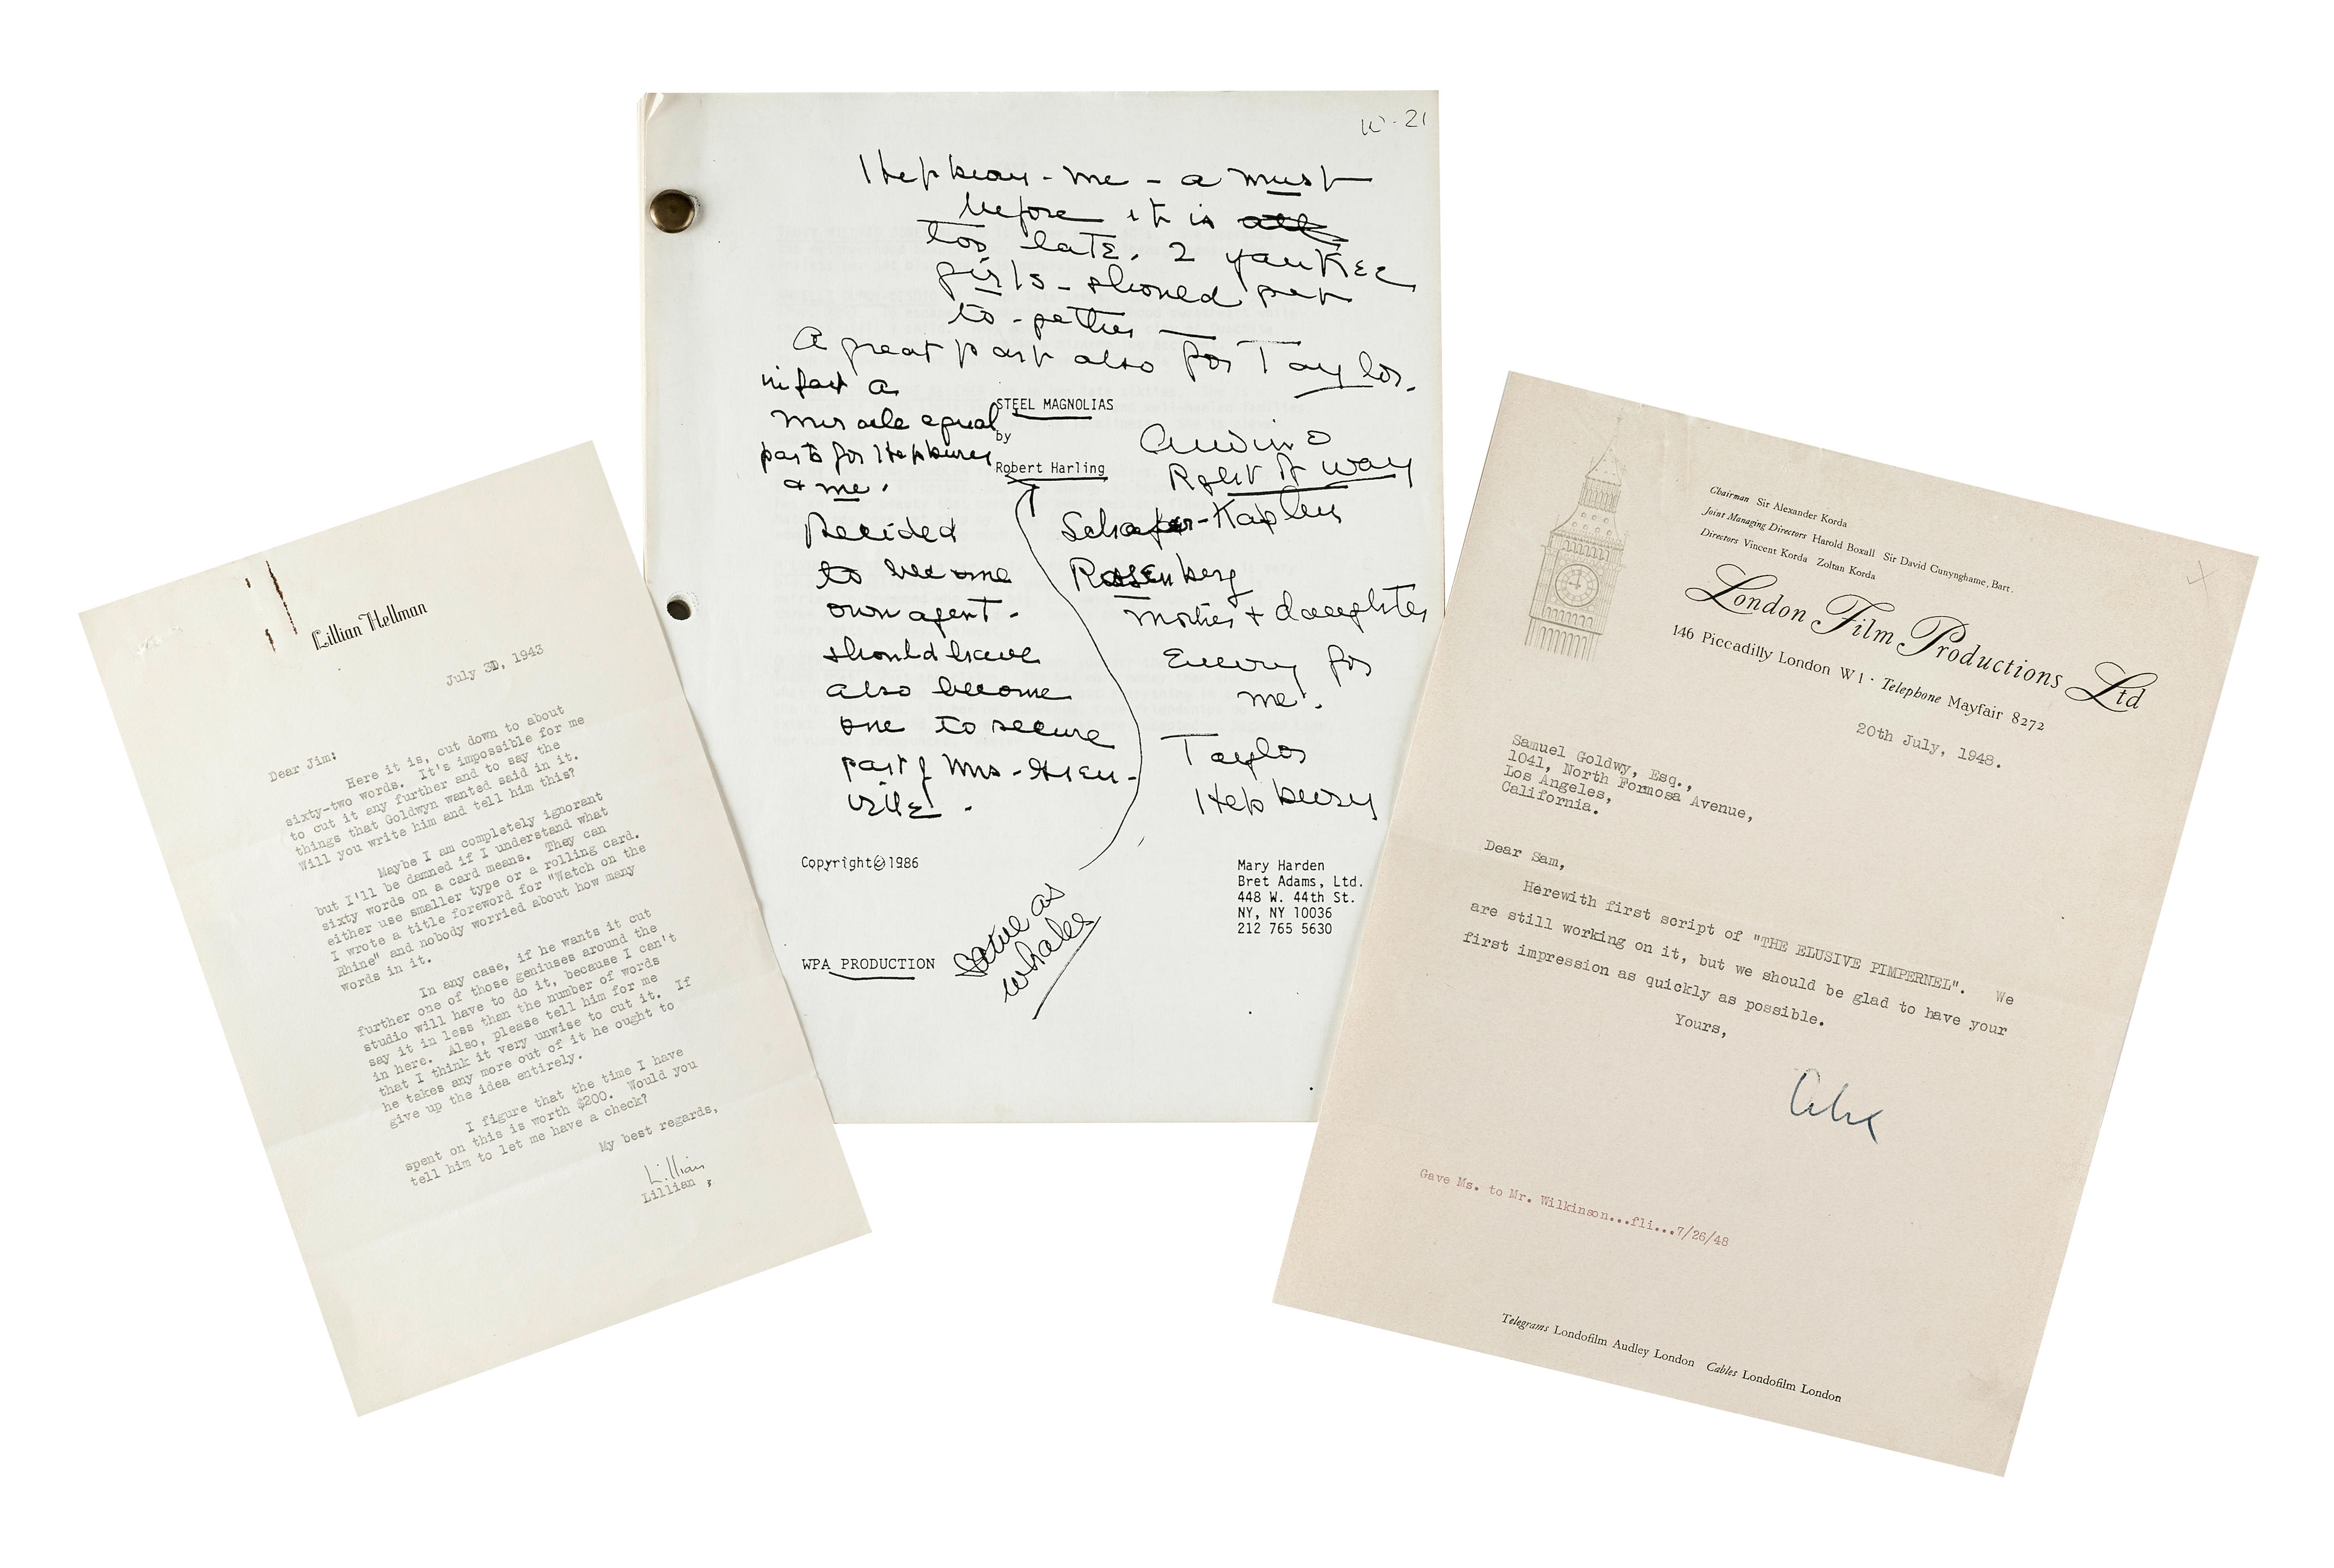 Lillian Hellman
July 30, 1943
Dear Jim:
Here it is, cut down to about
sixty-two words. It's impossible for me
to cut it any further and to say the
things that Goldwyn wanted said in it.
Will you write him and tell him this?
Maybe I am completely ignorant
but I'll be damned if I understand what
sixty words on a card means. They can
either use smaller type or a rolling card.
I wrote a title foreword for "Watch on the
Rhine" and nobody worried about how many
words in it.
In any case, if he wants it cut
further one of those geniuses around the
studio will have to do it, because I can't
say it in less than the number of words
in here. Also, please tell him for me
that I think it very unwise to cut it. If
he takes any more out of it he ought to
give up the idea entirely.
I figure that the time I have
spent on this is worth $200. Would you
tell him to let me have a check?
My best regards,
Lillian
Lillian
10-21
Hepburn - me - a must
before it is
too late. 2 yankee
girls - should get
to-gether
A great part also for Taylor.
in fact a
miracle equal
parts for Hepburn
& me.
STEEL MAGNOLIAS
by
Robert Harling
Right of way
Schafer-Kaplin
Rosenberg
Mother & daughter
for
me!
Taylor
Hepburn
Decided
to become
own agent -
should have
also become
one to secure
part of Mrs -
Copyright © 1986
Mary Harden
Bret Adams, Ltd.
448 W. 44th St.
NY, NY 10036
212 765 5630
WPA PRODUCTION
same as
whales
Chairman Sir Alexander Korda
Joint Managing Directors Harold Boxall Sir David Cunynghame, Bart.
Directors Vincent Korda Zoltan Korda
London Film Productions Ltd
146 Piccadilly London W1 · Telephone Mayfair 8272
20th July, 1948.
Samuel Goldwy, Esq.,
1041, North Formosa Avenue,
Los Angeles,
California.
Dear Sam,
Herewith first script of "THE ELUSIVE PIMPERNEL". We
are still working on it, but we should be glad to have your
first impression as quickly as possible.
Yours,
Alex
Gave Ms. to Mr. Wilkinson...fli...7/26/48
Telegrams Londofilm Audley London Cables Londofilm London